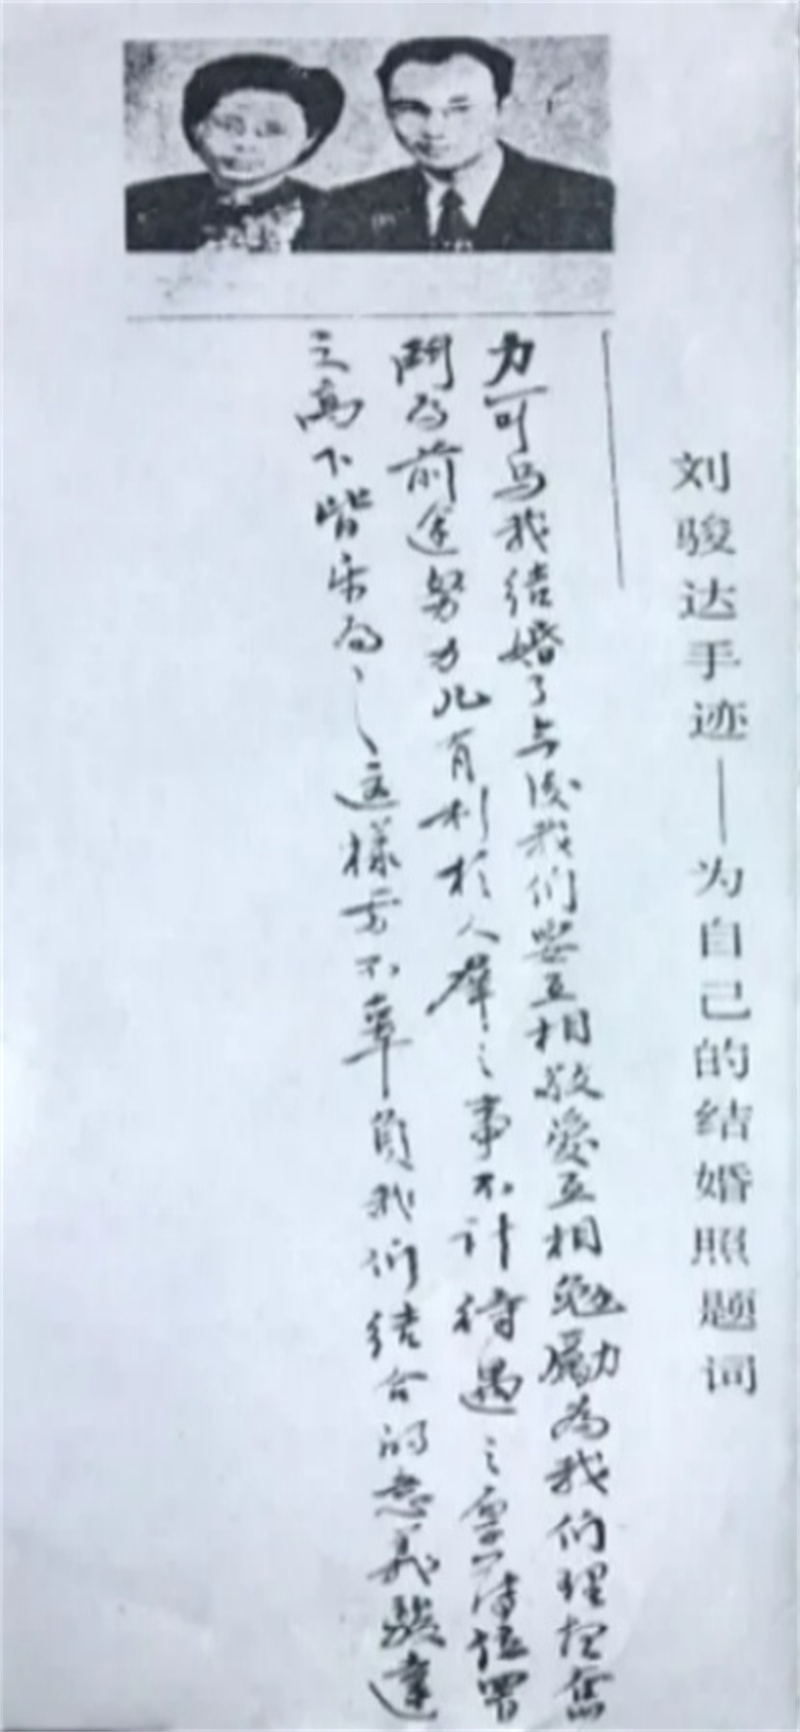 刘骏达手迹——为自己的结婚照题词
力可与我结婚了今后我们要互相敬爱互相勉勵為我们理想奮
鬥为前途努力凡有利於人群之事不计待遇之厚薄位置
之高下皆乐为之这樣方不辜負我们结合的意义駿達